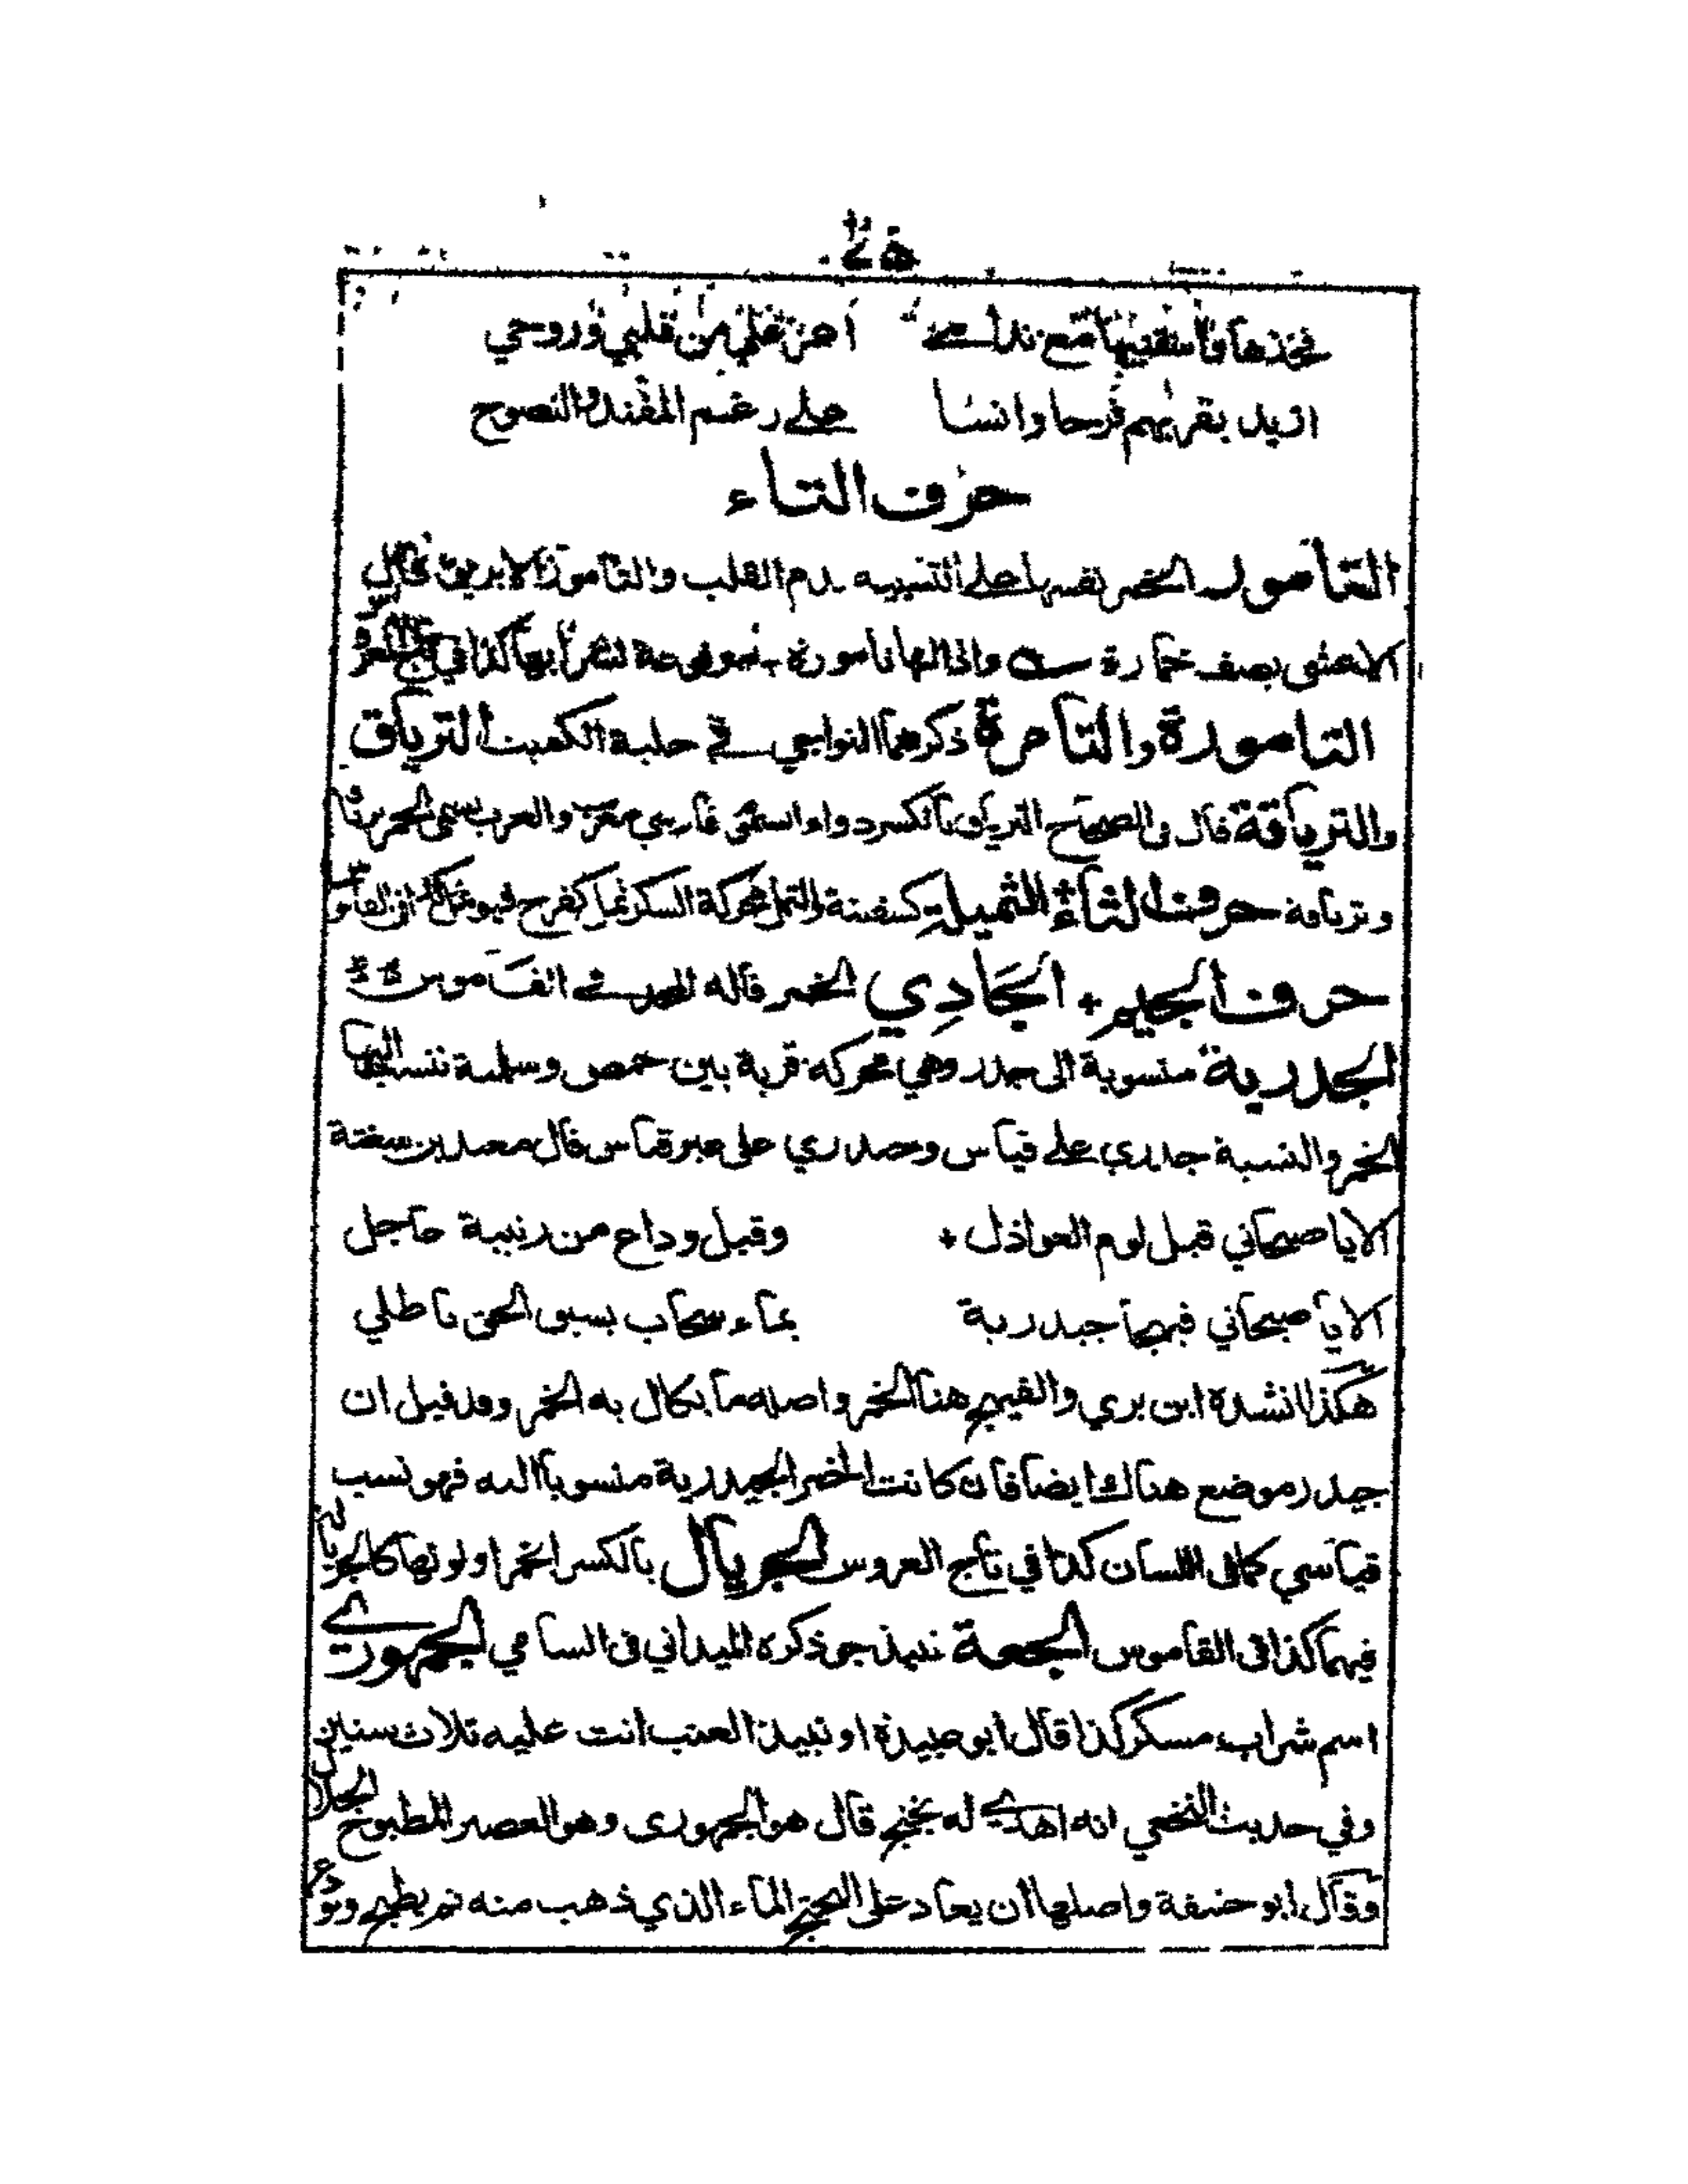 فخذها فاسقنيها مع ندامى اعز علي من قلبي وروحي
ازيد بقربهم فرحا وانسا على رغم المفند والنصوح
حرف التاء
التامور الخمر نفسها على التشبيه بدم القلب والتامورة الابريق قال
الاعشى يصف خمارة واذا لها تامورة مرفوعة لشرابها كذا في تاج العروس
التامورة والتامرة ذكرهما النواجي في حلبة الكميت الترياق
والترياقة قال في الصحاح الترياق بالكسر دواء السموم فارسي معرب والعرب تسمى الخمر ترياقا
وترياقة حرف الثاء الثميلة كسفينة والثمل محركة السكر ثمل كفرح فهو ثمل كذا في القاموس
حرف الجيم + الجَادِي الخمر قاله المجد في القاموس
الجدرية منسوبة الى جدر وهي محركه قرية بين حمص وسلمية تنسب اليها
الخمر والنسبة جدري على قياس وجيدري على غير قياس قال معبد بن سعنة
الا يا اصبحاني قبل لوم العواذل + وقبل وداع من زنيبة عاجل
الا يا اصبحاني فيهجا جيدرية بماء سحاب يسبق الحق باطلي
هكذا انشده ابن بري والفيهج هنا الخمر واصله ما يكال به الخمر وقد قيل ان
جيدر موضع هنالك ايضا فان كانت الخمر الجيدرية منسوبا اليه فهو نسب
قياسي كما في اللسان كذا في تاج العروس الجريال بالكسر الخمر او لونها كالجريالة
فيهما كذا في القاموس الجعة نبيذ جو ذكره الميداني في السامي الجمهوري
اسم شراب مسكر كذا قال ابو عبيدة او نبيذ العنب اتت عليه ثلاث سنين
وفي حديث النخعي انه اهدي له بختج قال هو الجمهوري وهو العصير المطبوخ الحلال
وقال ابو حنيفة واصلها ان يعاد على البختج الماء الذي ذهب منه ثم يطبخ ويودع